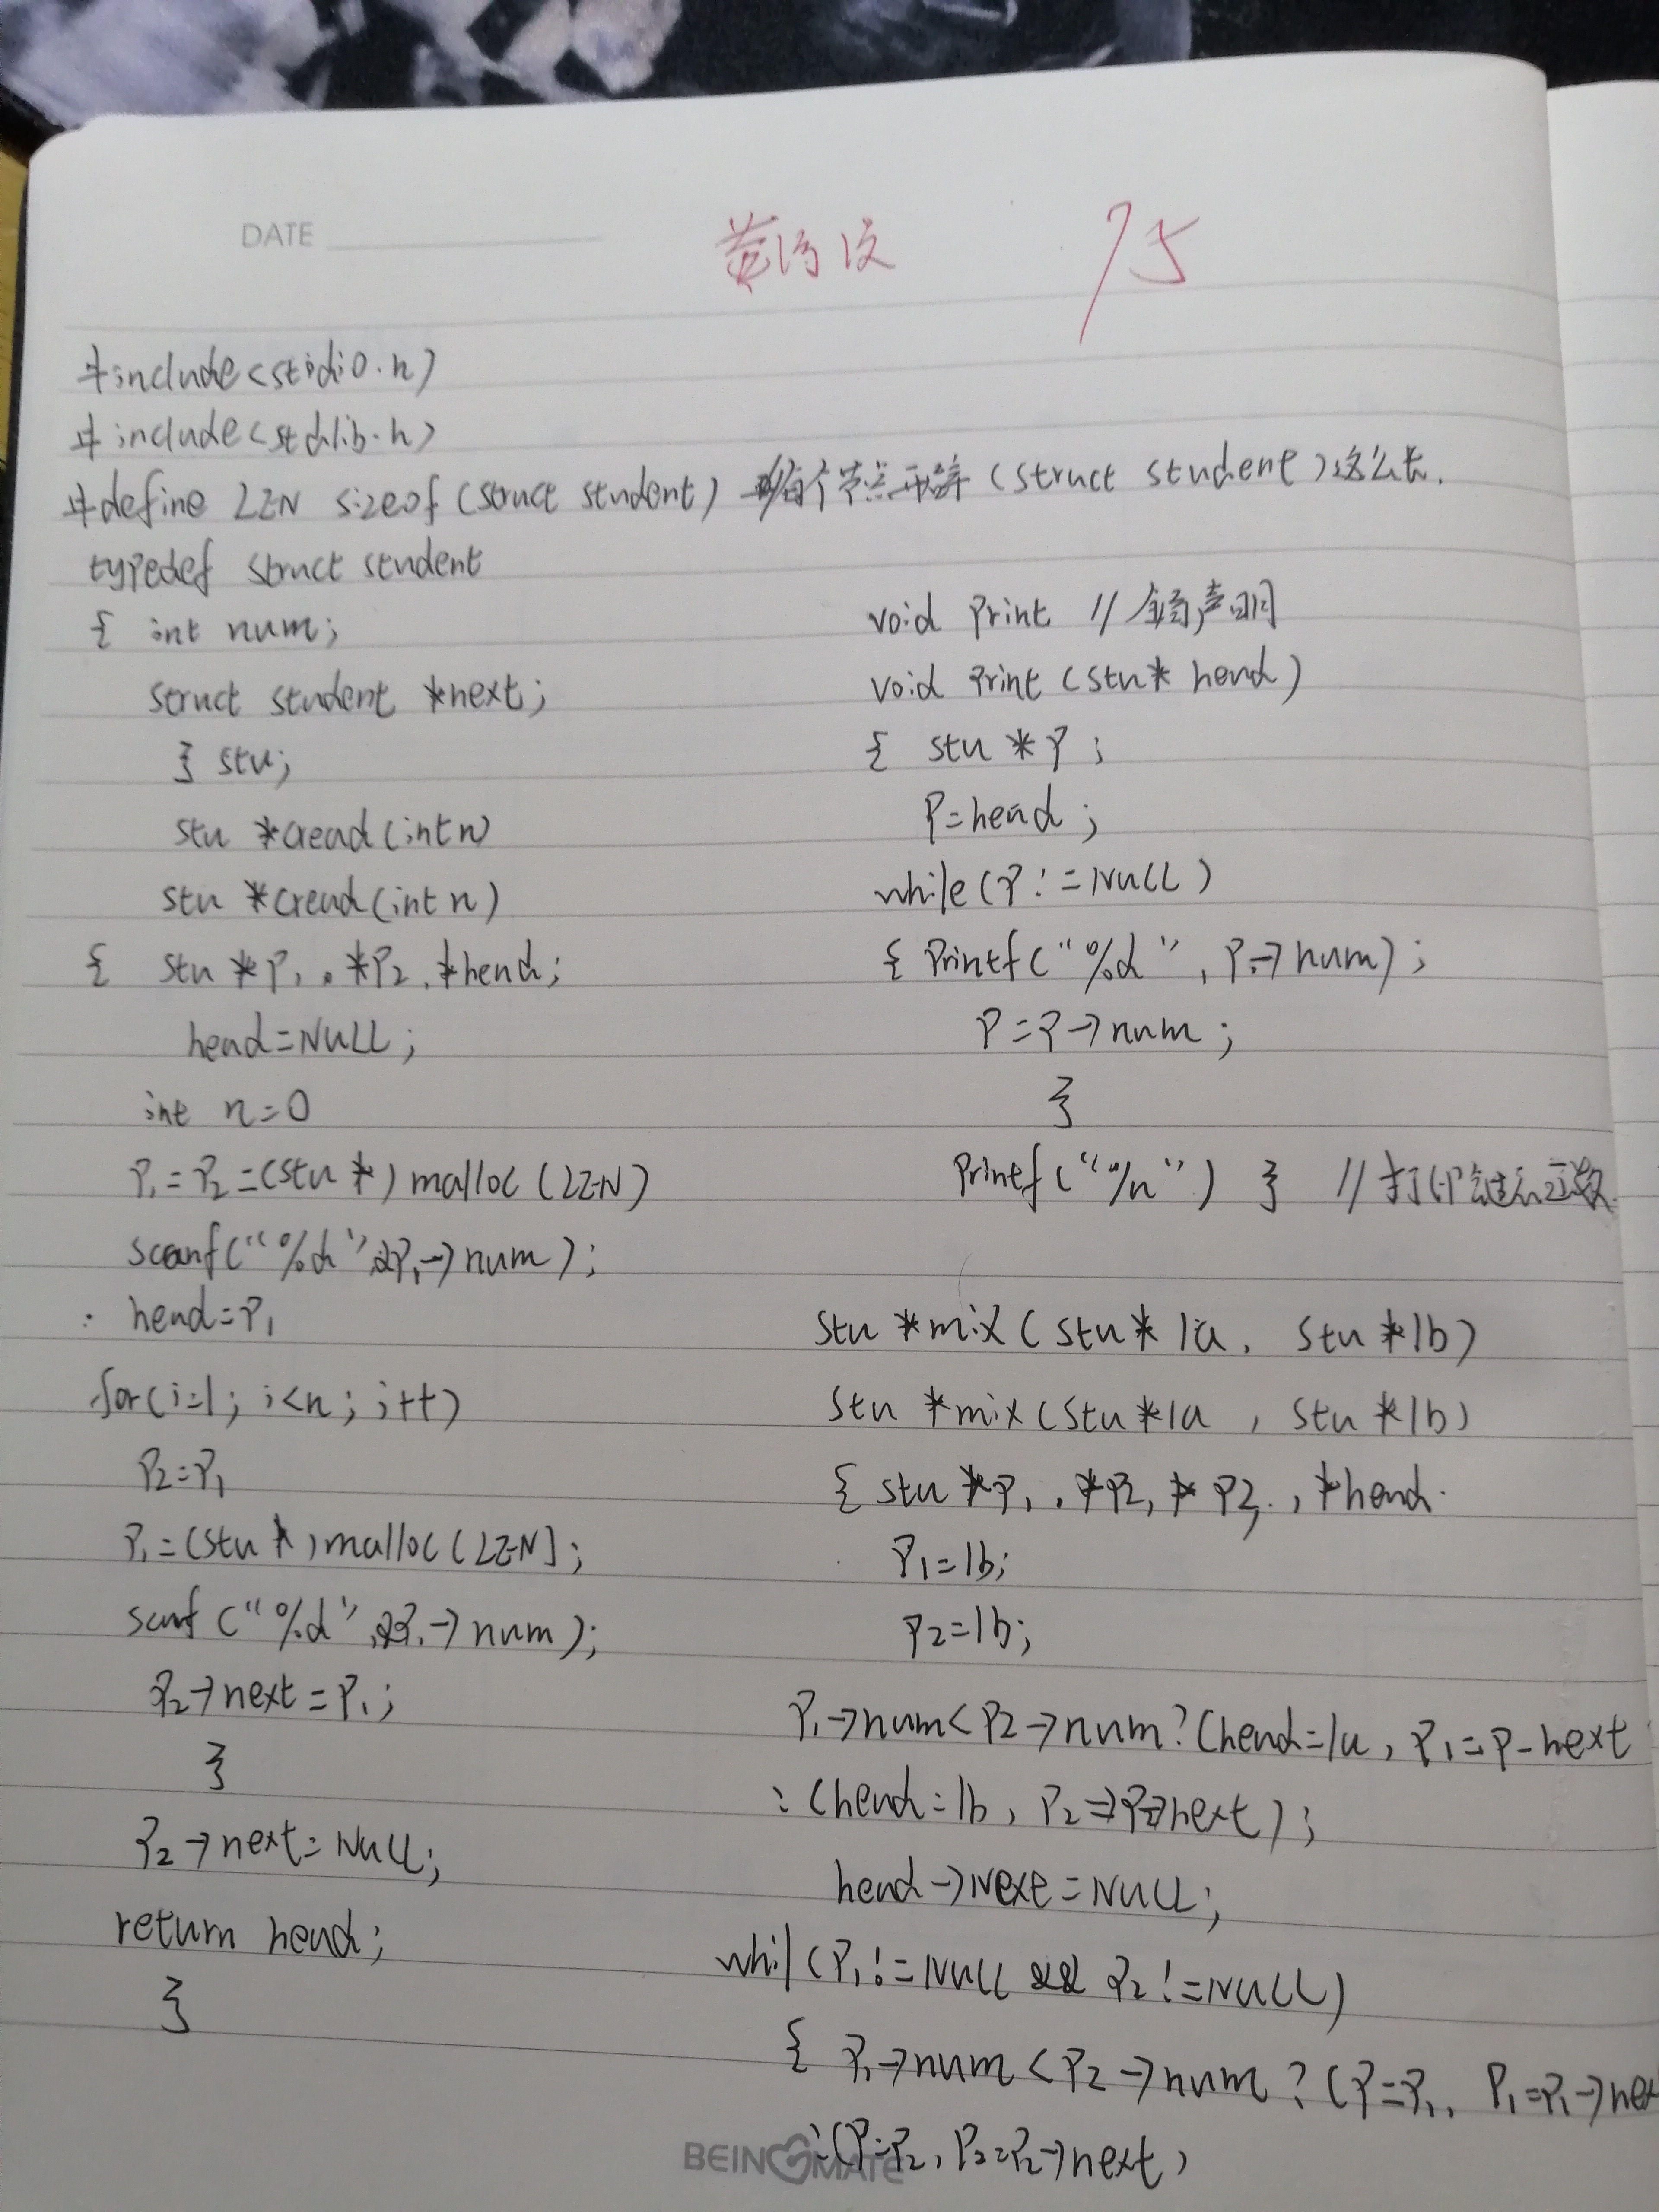 DATE
75
#include<stidio.h)
#include<stdlib.h>
#define LEN sizeof(struct student) 每个节点开辟(struct student)这么长.
typedef struct student
{ int num;
struct student *next;
} stu;
stu *cread(int n)
stu *cread(int n)
{ stu *P1, *P2, *head;
head=NULL;
int n=0
P1=P2=(stu *)malloc(LEN)
scanf("%d",&P1→num);
head=P1
for(i=1; i<n; i++)
P2=P1
P1=(stu *)malloc(LEN];
scanf("%d",&P1→num);
P2→next=P1;
}
P2→next=NULL;
return head;
}
void Print // 声明
void Print (stu* head)
{ stu *P;
P=head;
while(P!=NULL)
{ Printf("%d", P→num);
P=P→num;
}
Printf("/n") } //打印链表函数.
stu *mix(stu*la, stu*lb)
stu *mix(stu*la, stu*lb)
{ stu *P1, *P2, *P, *head.
P1=lb;
P2=lb;
P1→num<P2→num?(head=la, P1=P-next
:(head=lb, P2=P2→next);
head→Next=NULL;
whil(P1!=NULL && P2!=NULL)
{ P1→num<P2→num?(P=P1, P1=P1→nex
:(P=P2, P2=P2→next)
BEINGMATE